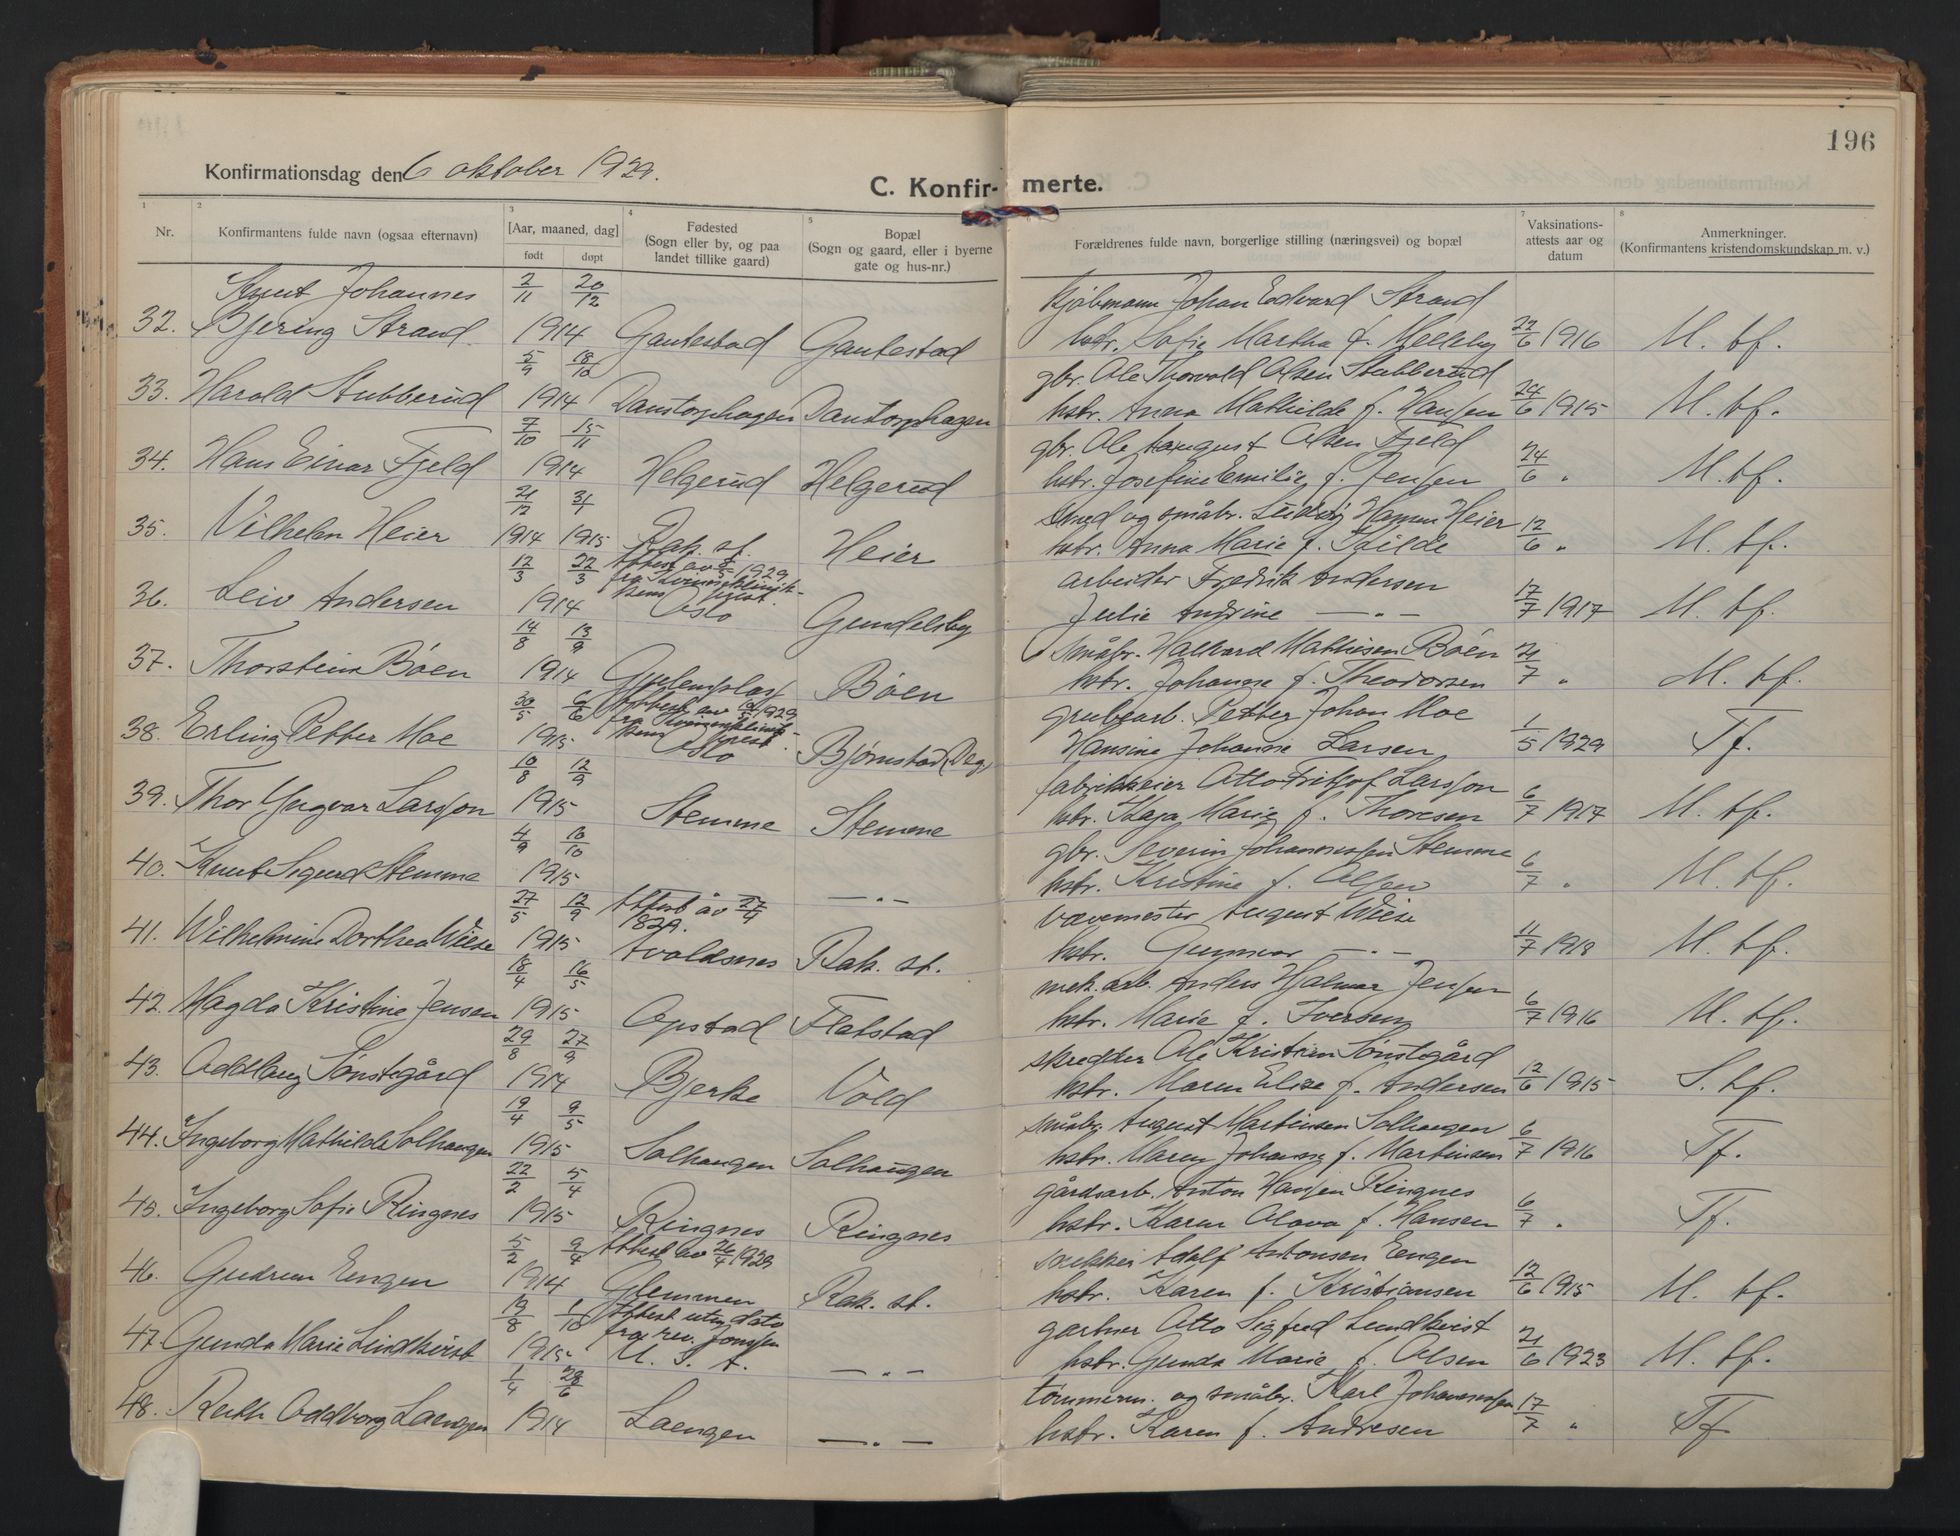 196
Konfirmationsdag den 6 oktober 1929.
C. Konfir- merte.
1 2 3 4 5 7 8
Nr. Konfirmantens fulde navn (ogsaa efternavn) [Aar, maaned, dag] født døpt Fødested (Sogn eller by, og paa landet tillike gaard) Bopæl (Sogn og gaard, eller i byerne gate og hus-nr.) Forældrenes fulde navn, borgerlige stilling (næringsvei) og bopæl Vaksinations-attests aar og datum Anmerkninger. (Konfirmantens kristendomskundskap m. v.)
Knut Johannes 2/11 20/12 Kjøbmann Johan Edvard Strand
32. Bjering Strand 1914 Gautestad Gautestad hstr. Sofie Martha f. Melleby 22/6 1916 M. tf.
5/9 18/10 gbr. Ole Thorvald Olsen Stubberud
33. Harald Stubberud 1914 Danstorphagen Danstorphagen hstr. Anna Mathilde f. Hansen 24/6 1915 M. tf.
7/10 15/11 gbr. Ole August Olsen Fjeld
34. Hans Einar Fjeld 1914 Helgerud Helgerud hstr. Josefine Emilie f. Jensen 24/6 " M. tf.
21/12 3/1 Smed og småbr. Ludvig Hansen Heier
35. Vilhelm Heier 1914 1915 Rak. st. Heier hstr. Anna Marie f. Kilde 12/6 " M. tf.
12/3 22/3 Attest av 1929 fra Kvinneklinikkens prest. arbeider Fredrik Andersen
36. Leiv Andersen 1914 Oslo Gundelsby Julie Andrine —"— 17/7 1917 M. tf.
14/8 13/9 småbr. Halvard Mathisen Bøen
37. Thorstein Bøen 1914 Bøen hstr. Johanne f. Theodorsen 21/7 " M. tf.
30/5 6/6 Attest av 1929 fra Kvinneklinikkens prest. grubearb. Petter Johan Moe
38. Erling Petter Moe 1915 Oslo Bjørnstad (Deg.) Hansine Johanne Larsen 1/5 1929 Tf.
10/8 12/9 fabrikkeier Otto Fritjof Larsson
39. Thor Yngvar Larsson 1915 Stemme Stemme hstr. Kaja Marie f. Thoresen 6/7 1917 M. tf.
4/9 10/10 gbr. Severin Johannessen Stemme
40. Knut Sigurd Stemme 1915 —"— hstr. Kristine f. Olsen 6/7 " M. tf.
27/5 12/9 Attest av 27/9 1829. vævemester August Wiese
41. Wilhelmine Dorthea Wiese 1915 Avaldsnes Rak. st. hstr. Gunnvor —"— 11/7 1918 M. tf.
18/4 16/5 mek. arb. Anders Hjalmar Jensen
42. Magda Kristine Jensen 1915 Opstad Flatstad hstr. Marie f. Iversen 6/7 1916 M. tf.
29/8 27/9 skredder Ole Kristian Sønstegård
43. Oddlaug Sønstegård 1914 Bjerke Vold hstr. Maren Elise f. Andersen 12/6 1915 S. tf.
19/4 9/5 småbr. August Martinsen Solhaugen
44. Ingeborg Mathilde Solhaugen 1915 Solhaugen Solhaugen hstr. Maren Johanne f. Martinsen 6/7 1916 Tf.
22/2 5/4 gårdsarb. Anton Hansen Ringnes
45. Ingeborg Sofie Ringnes 1915 Ringnes Ringnes hstr. Karen Olava f. Hansen 6/7 " Tf.
5/2 9/4 Attest av 26/4 1929 Adolf Antonsen Eengen
46. Gudrun Eengen 1914 Glemmen Rak. st. hstr. Karen f. Kristiansen 12/6 1915 M. tf.
19/8 1/10 Attest uten dato fra rev. Jonsson gartner Otto Sigfred Lundkvist
47. Gunda Marie Lindkvist 1915 U. S. A. —"— hstr. Gunda Marie f. Olsen 21/6 1923 M. tf.
1/4 28/6 tømmerm. og småbr. Karl Johannessen
48. Ruth Oddborg Laengen 1914 Laengen —"— hstr. Karen f. Andresen 17/7 " Tf.